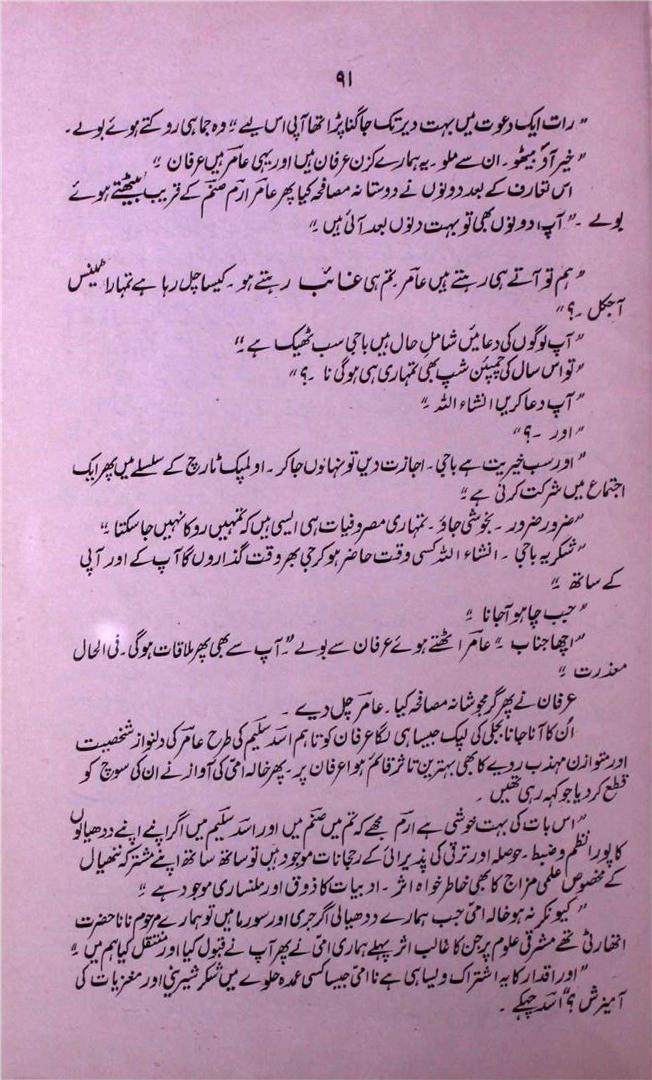 ۹۱
” رات ایک دعوت میں بہت دیر تک جاگنا پڑا تھا آپی اس لیے “ وہ جماہی روکتے ہوئے بولے۔
” خیر آؤ بیٹھو۔ ان سے ملو۔ یہ ہمارے کزن عرفان ہیں اور یہی عامر ہیں عرفان “
اس تعارف کے بعد دونوں نے دوستانہ مصافحہ کیا پھر عامر ارم صنم کے قریب بیٹھتے ہوئے
بولے۔ ” آپ دونوں بھی تو بہت دنوں بعد آئی ہیں “
” ہم تو آتے ہی رہتے ہیں عامر تم ہی غائب رہتے ہو۔ کیسا چل رہا ہے تمہارا ٹینس
آجکل۔؟ “
” آپ لوگوں کی دعائیں شامل حال ہیں باجی سب ٹھیک ہے “
” تو اس سال کی چیمپئن شپ بھی تمہاری ہی ہوگی نا۔؟ “
” آپ دعا کریں انشاء اللہ “
” اور۔؟ “
” اور سب خیریت ہے باجی۔ اجازت دیں تو نہاؤں جاکر۔ اولمپک ٹارچ کے سلسلے میں پھر ایک
اجتماع میں شرکت کرنی ہے “
” ضرور ضرور۔ بخوشی جاؤ۔ تمہاری مصروفیات ہی ایسی ہیں کہ تمہیں روکا نہیں جاسکتا “
” شکریہ باجی۔ انشاء اللہ کسی وقت حاضر ہوکر جی بھر وقت گذاروں گا آپ کے اور آپی
کے ساتھ “
” جب چاہو آجانا “
” اچھا جناب “ عامر اٹھتے ہوئے عرفان سے بولے ” آپ سے بھی پھر ملاقات ہوگی۔ فی الحال
معذرت “
عرفان نے پھر گرمجوشانہ مصافحہ کیا۔ عامر چل دیے۔
اُن کا آنا جانا بجلی کی لپک جیسا ہی لگا عرفان کو تاہم اسد سلیم کی طرح عامر کی دلنواز شخصیت
اور متوازن مہذب رویے کا بھی بہترین تاثر قائم ہوا عرفان پر۔ پھر خالہ امی کی آواز نے ان کی سوچ کو
قطع کردیا جو کہہ رہی تھیں۔
” اس بات کی بہت خوشی ہے ارم مجھے کہ تم میں صنم میں اور اسد سلیم میں اگر اپنے اپنے ددھیالوں
کا پورا نظم و ضبط۔ حوصلہ اور ترقی کی پذیرائی کے رجحانات موجود ہیں تو ساتھ ساتھ اپنے مشترکہ ننھیال
کے مخصوص علمی مزاج کا بھی خاطر خواہ اثر۔ ادبیات کا ذوق اور ملنساری موجود ہے “
” کیونکر نہ ہو خالہ امی جب ہمارے ددھیالی اگر جری اور سورما ہیں تو ہمارے مرحوم نانا حضرت
اتھارٹی تھے مشرقی علوم پر جن کا غالب اثر پہلے ہماری امی نے پھر آپ نے قبول کیا اور منتقل کیا ہم میں “
” اور اقدار کا یہ اشتراک ویسا ہی ہے نا امی جیسا کسی عمدہ حلوے میں شکر شیرینی اور مغزیات کی
آمیزش؟ “ اسد چہکے۔